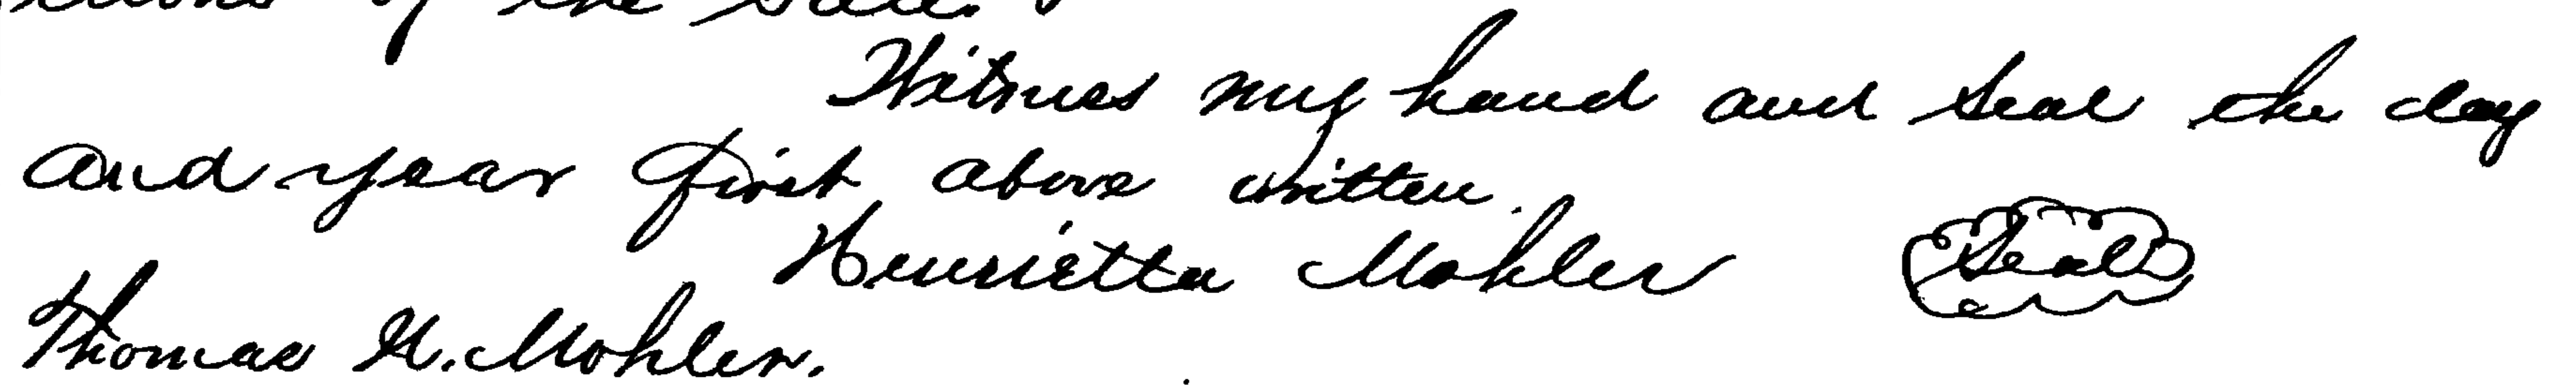 of the sale.
Witness my hand and Seal the day
and year first above written.
Henrietta Mohler Seal
Thomas H. Mohler.